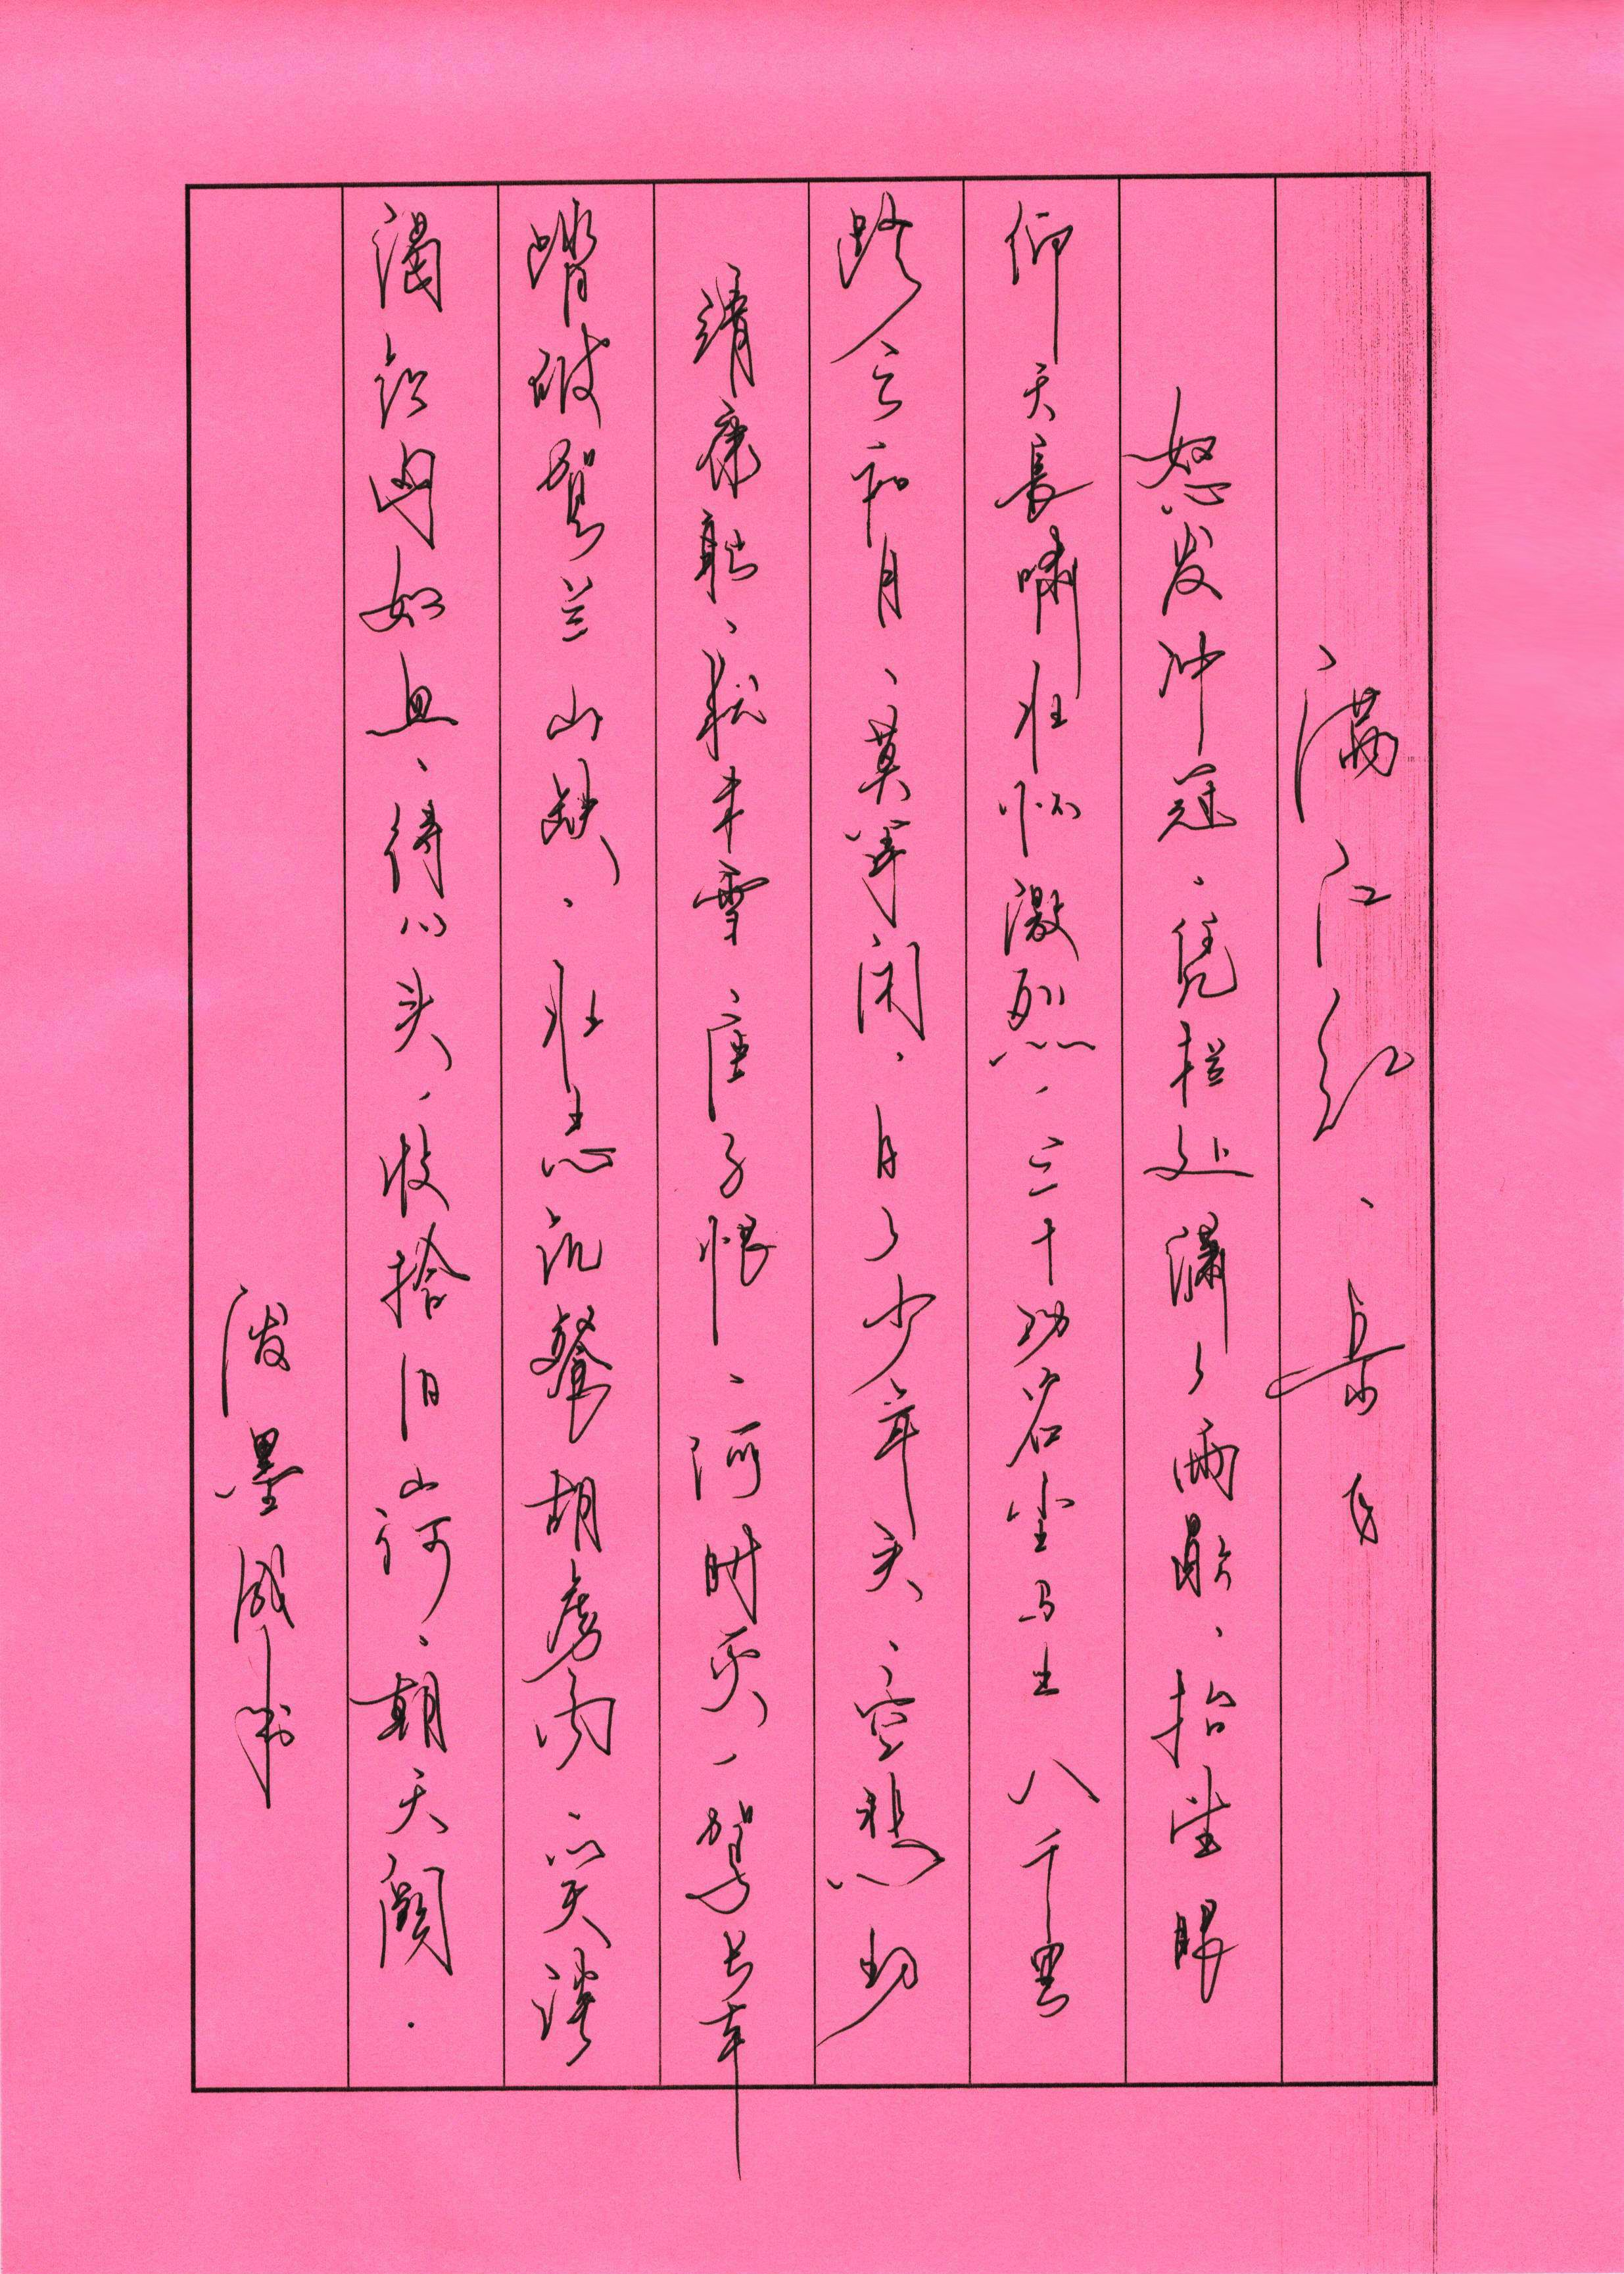 满江红、岳飞
怒发冲冠、凭栏处潇々雨歇、抬望眼
仰天長啸壮怀激烈、三十功名尘与土八千里
路云和月、莫等闲、白了少年头、空悲切
靖康耻、犹未雪、臣子恨、何时灭、驾长车
踏破贺兰山缺、壮志饥餐胡虏肉、笑谈
渴饮匈奴血、待从头、收拾旧山河、朝天阙.
泼墨